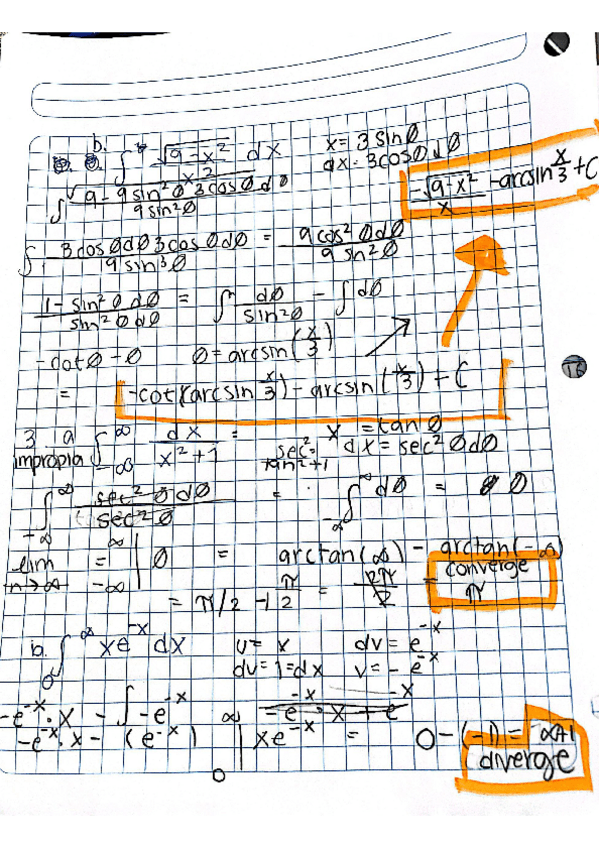 b. ∫ √9-x² / x² dx    x = 3 sinθ
dx = 3cosθ dθ
-√9-x² / x - arcsin x/3 + C
∫ √9-9sin²θ 3cosθ dθ / 9sin²θ
∫ 3cosθ dθ 3cosθ dθ / 9sin³θ = 9cos²θ dθ / 9 sin²θ
1-sin²θ dθ / sin²θ dθ = ∫ dθ / sin²θ - ∫ dθ
-cotθ - θ    θ = arcsin(x/3)
= -cot(arcsin x/3) - arcsin(x/3) + C
3. a ∫ ∞ -∞ dx / x²+1 =    x = tanθ
impropia    sec² = tan²+1    dx = sec²θ dθ
∫ ∞ -∞ sec²θ dθ / sec²θ = ∫ ∞ -∞ dθ = θ
lim n→∞ = ∞ -∞ | θ = arctan(∞) - arctan(-∞)
= π/2 -1 π/2 = 2π/2 = converge π
b. ∫ ∞ 0 xe^-x dx    u = x    dv = e^-x
du = 1 = dx    v = -e^-x
-e^-x · x - ∫ -e^-x    -e^-x · x + e^-x
-e^-x · x - (e^-x)    ∞ 0 | xe^-x = 0-(-1) = ∞+1
diverge